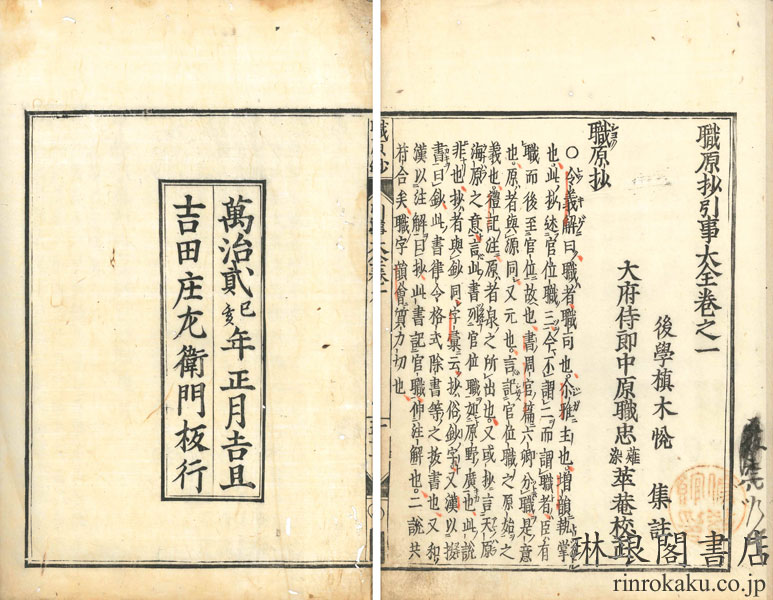 職原抄引事大全卷之一
後學槙木悅 集註
大府侍郎中原職忠 蘿染 萃菴校
職原抄
〇令義解曰職者職司也尒雅主也増韻執掌
也此抄述官位職三今不謂二而謂職者臣有
職而後至官位故也書周官篇六卿分職是意
也原者與源同又元也言記官位職之原始之
義也禮記注原者泉之所出也又或抄言天原
海原之意言此書列官位職如原野廣也此説
非也抄者與鈔同字彙云抄俗鈔字又漢以謄
書曰鈔此書律令格式除書等之抜書也又和
漢以注解曰抄此書記官職仲注解也二説共
符合矣職字韻會質力切也
職原抄 引事大全卷之一
萬治貳己亥年正月吉旦
吉田庄左衛門板行
林良閣書店
rinrokaku.co.jp